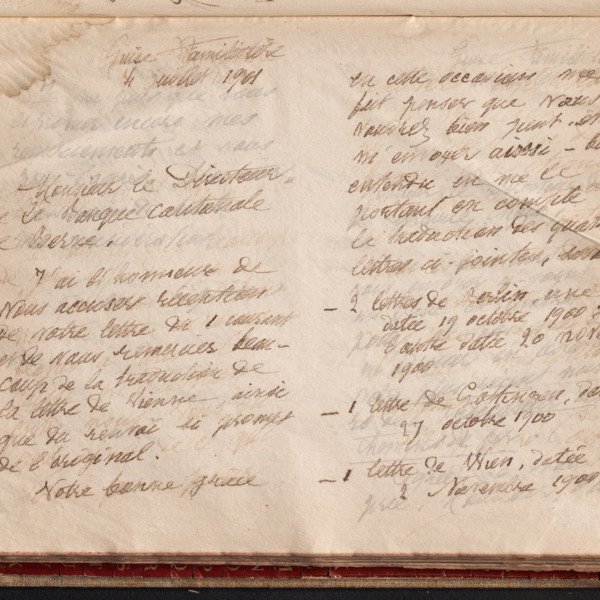 Guise Familistère
4 juillet 1901
Monsieur le Directeur
de la Banque cantonale
de Berne.
J'ai l'honneur de
vous accuser réception
de votre lettre du 1 courant
et de vous remercier beau-
coup de la traduction de
la lettre de Vienne, ainsi
que du renvoi si prompt
de l'original.
Votre bonne grâce
en cette occasion me
fait penser que vous
voudrez bien peut-et
m'envoyer aussi – bi
entendu en me le
portant en compte
la traduction des quat
lettres ci-jointes,
– 2 lettres de Berlin, une
datée 19 octobre 1900
l'autre datée 20 nov
1900
– 1 lettre de Gottingen, da
27 octobre 1900
– 1 lettre de Wien, datée
2 Novembre 1900